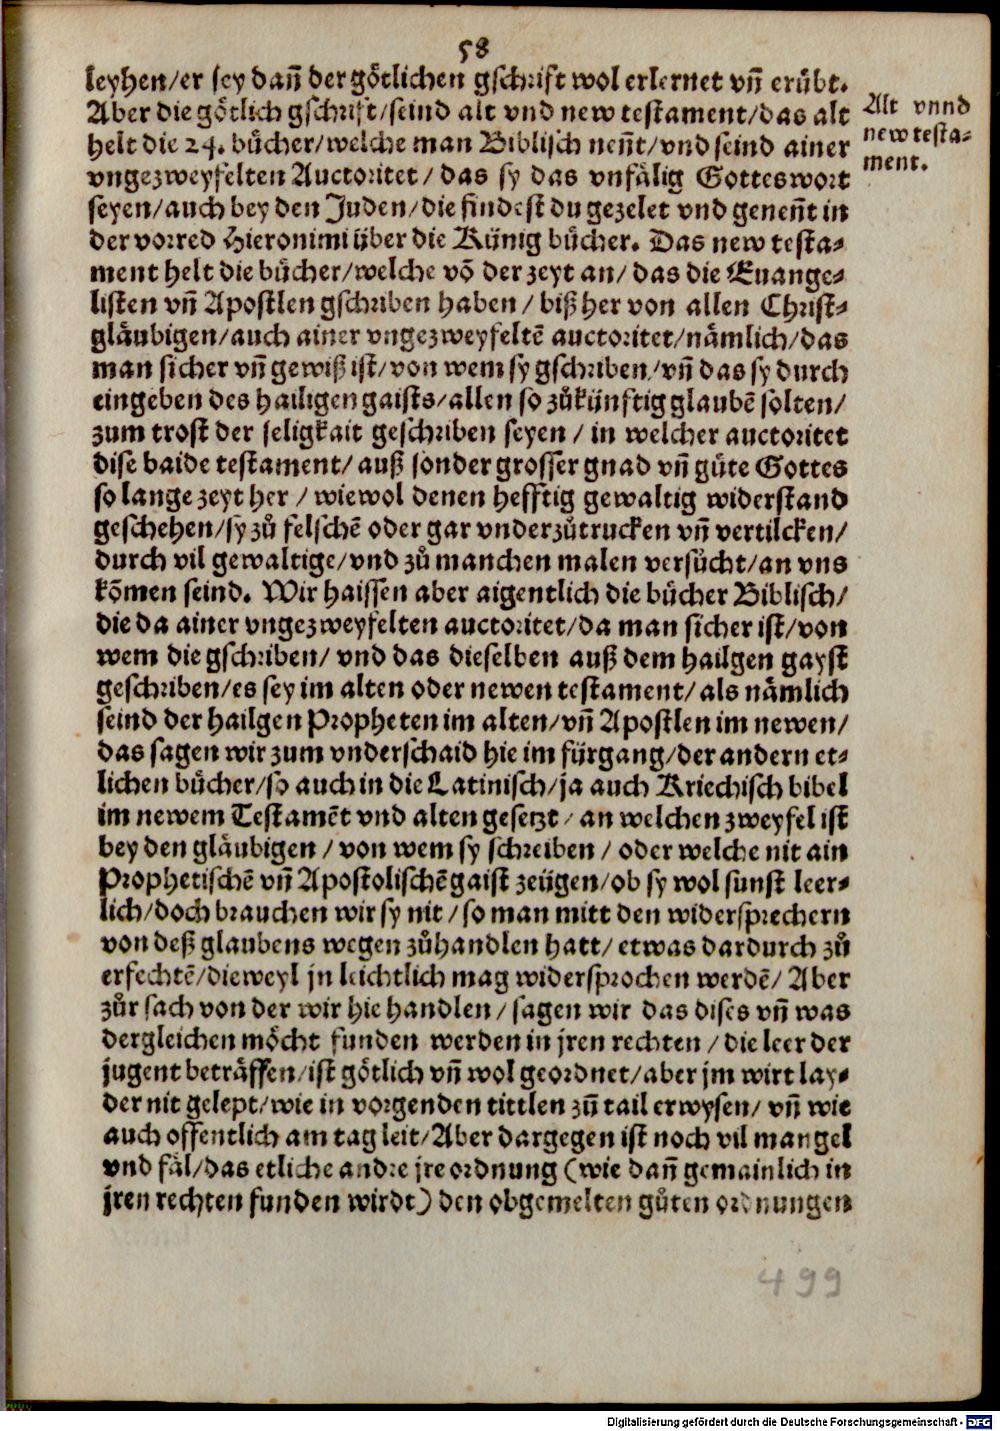 58
leyhen/er sey dañ der götlichen gschrift wol erlernet vñ erübt.
Aber die götlich gschrift/seind alt vnd new testament/das alt
helt die 24. bücher/welche man Biblisch neñt/vnd seind ainer
vngezweyfelten Auctoritet/das sy das vnfälig Gotteswort
seyen/auch bey den Juden/die findest du gezelet vnd geneñt in
der vorred Hieronimi über die Künig bücher. Das new testa-
ment helt die bücher/welche võ der zeyt an/das die Euange-
listen vñ Apostlen gschriben haben/biß her von allen Christ-
gläubigen/auch ainer vngezweyfeltẽ auctoritet/nämlich/das
man sicher vñ gewiß ist/von wem sy gschriben/vñ das sy durch
eingeben des hailigen gaists/allen so zůkünftig glaubẽ solten/
zum trost der seligkait geschriben seyen/in welcher auctoritet
dise baide testament/auß sonder grosser gnad vñ güte Gottes
so lange zeyt her/wiewol denen hefftig gewaltig widerstand
geschehen/sy zů felschẽ oder gar vnderzůtrucken vñ vertilcken/
durch vil gewaltige/vnd zů manchen malen versücht/an vns
kõmen seind. Wir haissen aber aigentlich die bücher Biblisch/
die da ainer vngezweyfelten auctoritet/da man sicher ist/von
wem die gschriben/vnd das dieselben auß dem hailgen gayst
geschriben/es sey im alten oder newen testament/als nämlich
seind der hailgen Propheten im alten/vñ Apostlen im newen/
das sagen wir zum vnderschaid hie im fürgang/der andern et-
lichen bücher/so auch in die Latinisch/ja auch Kriechisch bibel
im newem Testamẽt vnd alten gesetzt/an welchen zweyfel ist
bey den gläubigen/von wem sy schreiben/oder welche nit ain
Prophetischẽ vñ Apostolischẽ gaist zeügen/ob sy wol sunst leer-
lich/doch brauchen wir sy nit/so man mitt den widersprechern
von deß glaubens wegen zůhandlen hatt/etwas dardurch zů
erfechtẽ/dieweyl jn leichtlich mag widersprochen werdẽ/Aber
zůr sach von der wir hie handlen/sagen wir das dises vñ was
dergleichen möcht funden werden in jren rechten/die leer der
jugent beträffen/ist götlich vñ wol geordnet/aber jm wirt lay-
der nit gelept/wie in vorgenden tittlen zũ tail erwysen/vñ wie
auch offentlich am tag leit/Aber dargegen ist noch vil mangel
vnd fäl/das etliche andre jre ordnung (wie dañ gemainlich in
jren rechten funden wirdt) den obgemelten gůten ordnungen
Alt vnnd
new testa-
ment.
499
Digitalisierung gefördert durch die Deutsche Forschungsgemeinschaft - DFG